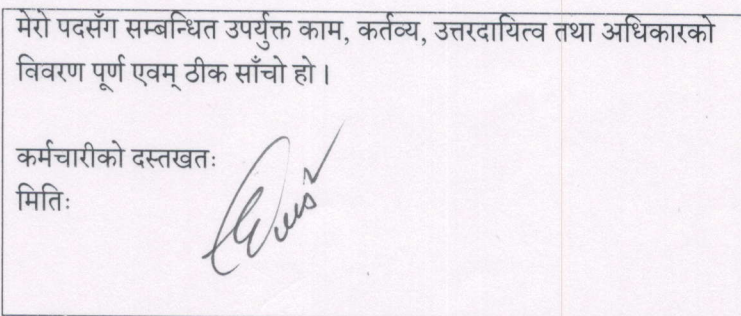 मेरो पदसँग सम्बन्धित उपर्युक्त काम, कर्तव्य, उत्तरदायित्व तथा अधिकारको
विवरण पूर्ण एवम् ठीक साँचो हो ।
कर्मचारीको दस्तखतः
मितिः